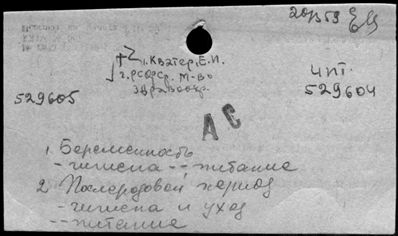 20/х 59
1. Кватер, Е.И.
2. РСФСР. М-во
здравоохр.
Чит.
529605
529604
АС
1. Беременность
- гигиена -- питание
2. Послеродовой период
- гигиена и уход
-- питание